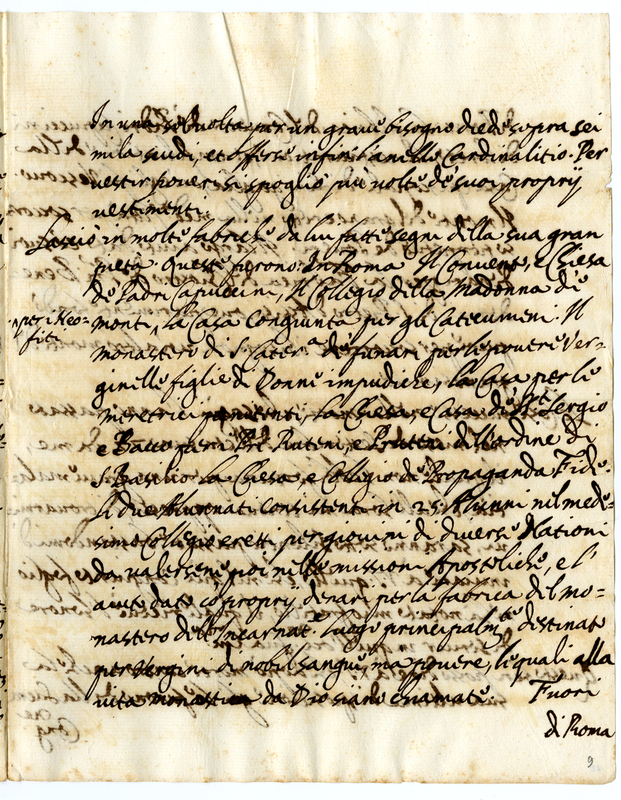 In una sol volta per un grave bisogno diede sopra sei
mila scudi, et offerse infin l'anello Cardinalitio. Per
vestir poveri si spogliò più volte de suoi proprij
vestimenti.
Lasciò in molte fabriche da lui fatte segni della sua gran
pietà. Queste furono: In Roma Il Convento, e Chiesa
de Padri Capuccini, Il Collegio della Madonna de
monti, la Casa congiunta per gli Catecumeni. Il
per i Neo=
fiti
monastero di S. Cater.a de funari per le povere Ver=
ginelle figlie di Donne impudiche, la Casa per le
meretrici penitenti, la Chiesa, e Casa di Sergio
e Bacco per i Pri Ruteni, e dell'ordine di
S. Basilio la Chiesa, e Collegio de Propaganda Fide.
Li due Alunnati consistenti in 25 Alunni nel mede=
simo Collegio eretti per giovini di diverse Nationi
da valersene poi nelle missioni Apostoliche, e l'
aiuto dato co proprij denari per la fabrica del mo=
nastero dell'Incarnat.e luogo principalm.te destinato
per Vergini di nobil sangue, ma povere, le quali alla
vita monastica da Dio siano chiamate. Fuori
di Roma
9